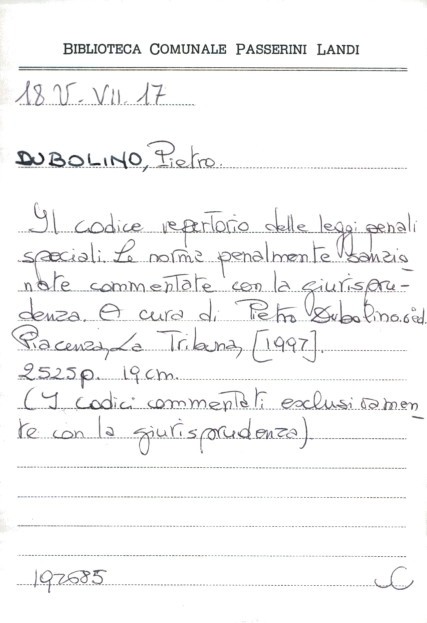 BIBLIOTECA COMUNALE PASSERINI LANDI
18 V. VII. 17
DUBOLINO, Pietro.
Il codice repertorio delle leggi penali
speciali. Le norme penalmente sanzio_
nate commentate con la giurispru-
denza. A cura di Pietro Dubolino. 6ed.
Piacenza, La Tribuna, [1997].
2525 p. 19 cm.
(I codici commentati esclusivamen_
te con la giurisprudenza).
197685